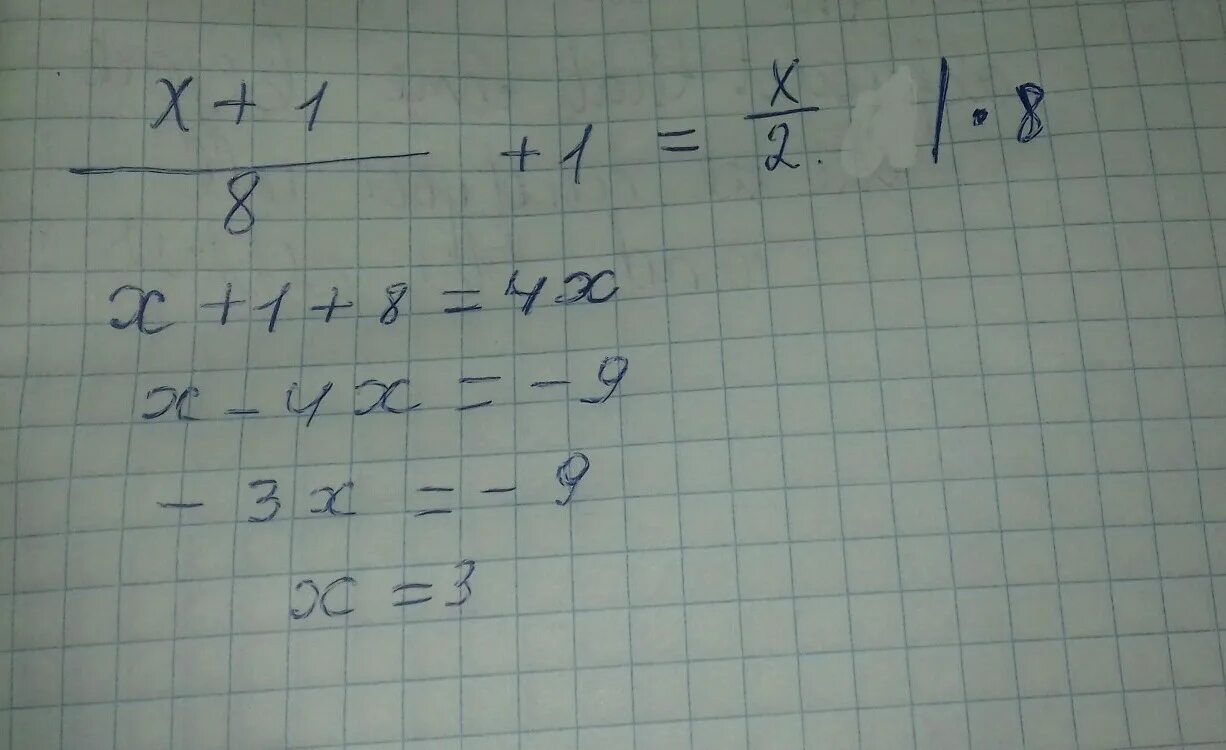 x + 1 / 8 + 1 = x / 2. | · 8
x + 1 + 8 = 4x
x - 4x = - 9
- 3x = - 9
x = 3